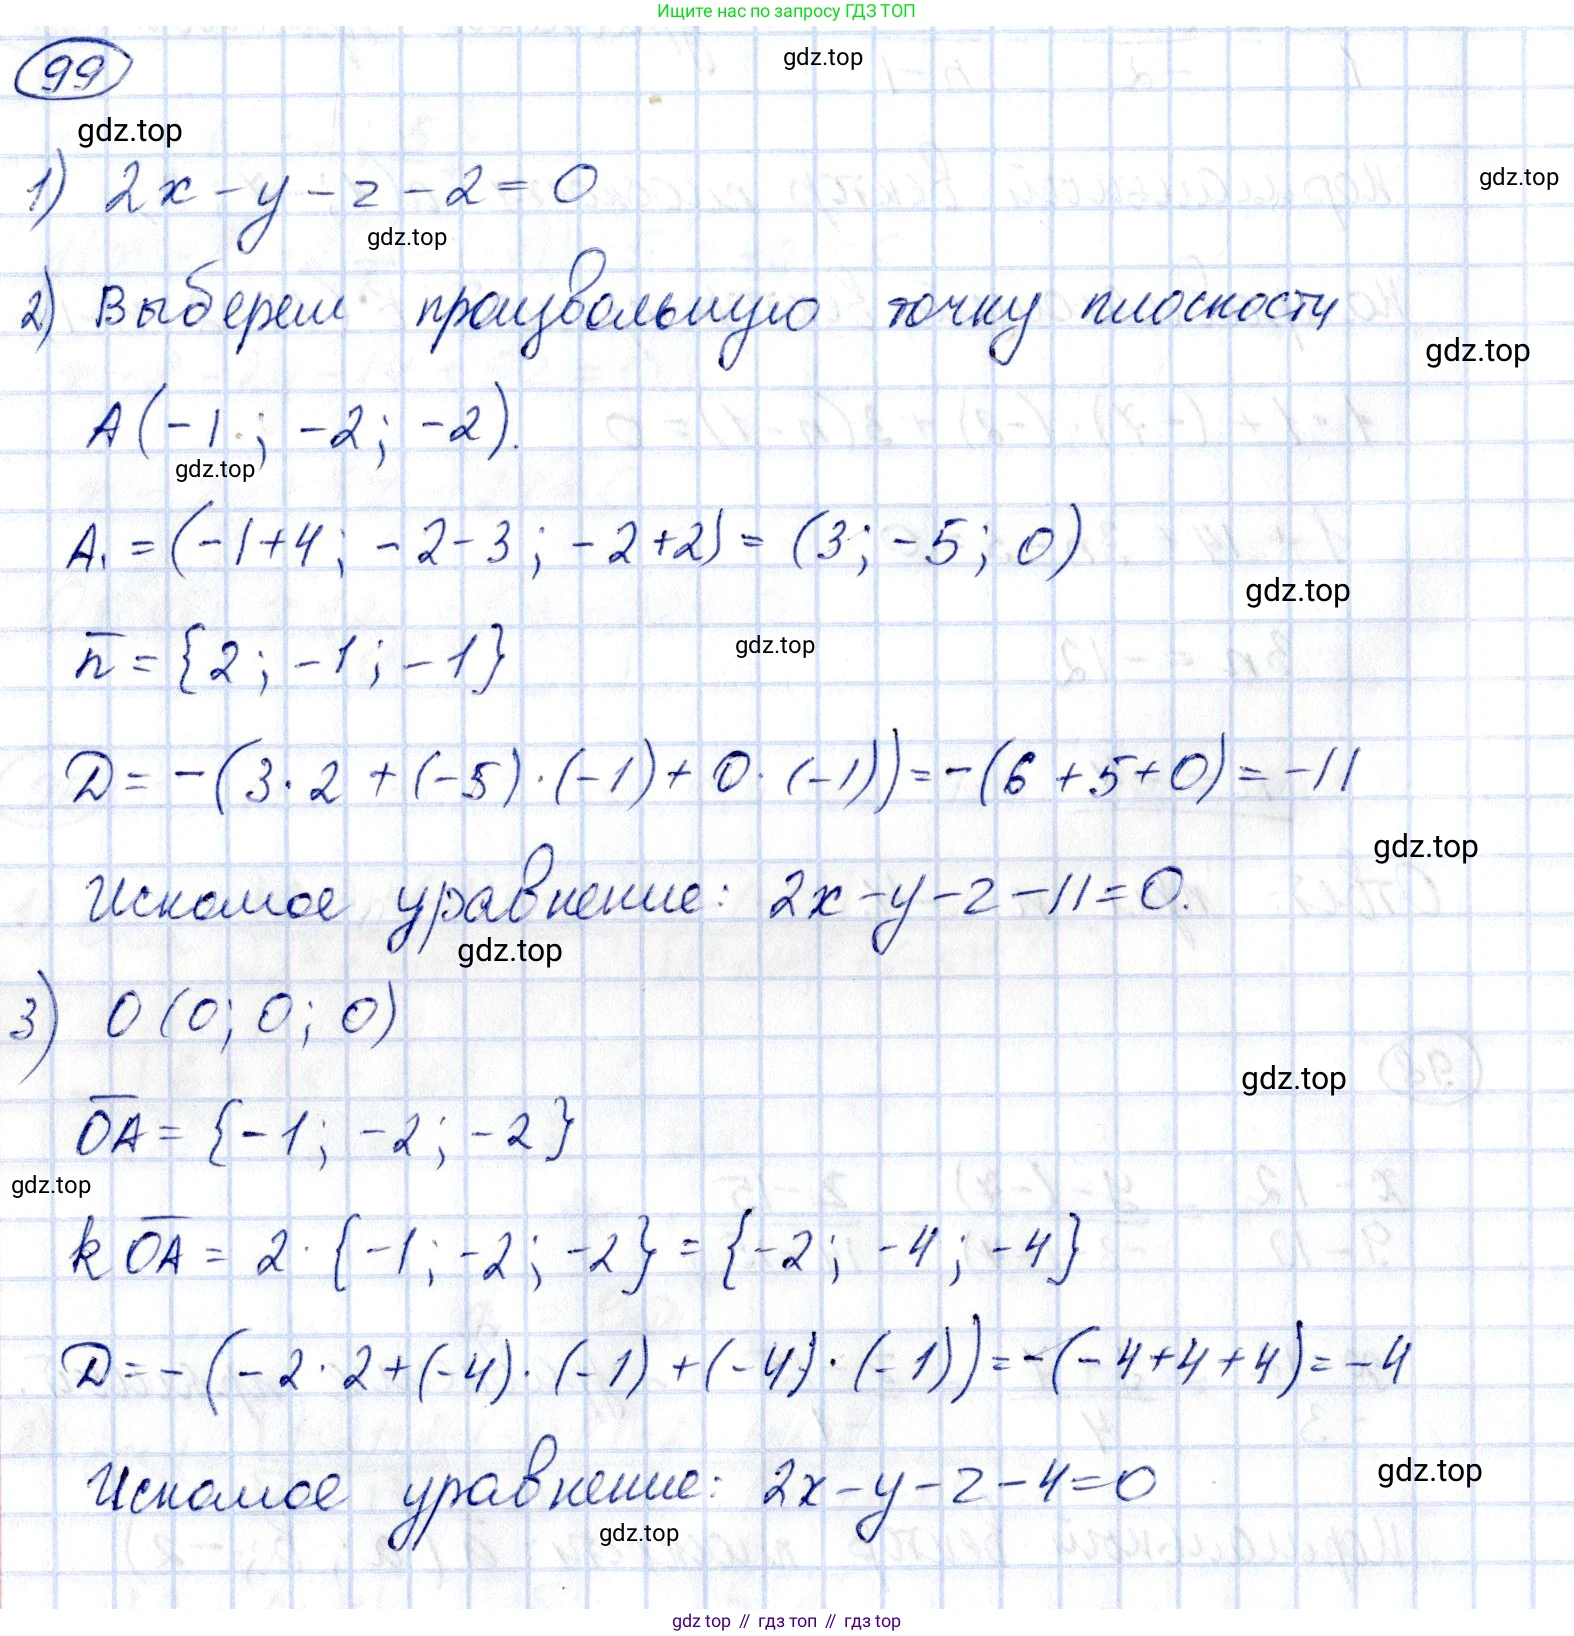 Ищите нас по запросу ГДЗ ТОП
gdz.top
99
gdz.top
1) 2x - y - z - 2 = 0
gdz.top
gdz.top
2) Выберем произвольную точку плоскости
gdz.top
A(-1; -2; -2).
gdz.top
A₁ = (-1+4; -2-3; -2+2) = (3; -5; 0)
gdz.top
n̅ = {2; -1; -1}
gdz.top
D = -(3·2 + (-5)·(-1) + 0·(-1)) = -(6+5+0) = -11
gdz.top
Искомое уравнение: 2x - y - z - 11 = 0.
gdz.top
3) O(0; 0; 0)
gdz.top
O̅A̅ = {-1; -2; -2}
gdz.top
k O̅A̅ = 2·{-1; -2; -2} = {-2; -4; -4}
D = -(-2·2 + (-4)·(-1) + (-4)·(-1)) = -(-4+4+4) = -4
gdz.top
Искомое уравнение: 2x - y - z - 4 = 0
gdz.top
gdz top // гдз топ // гдз top